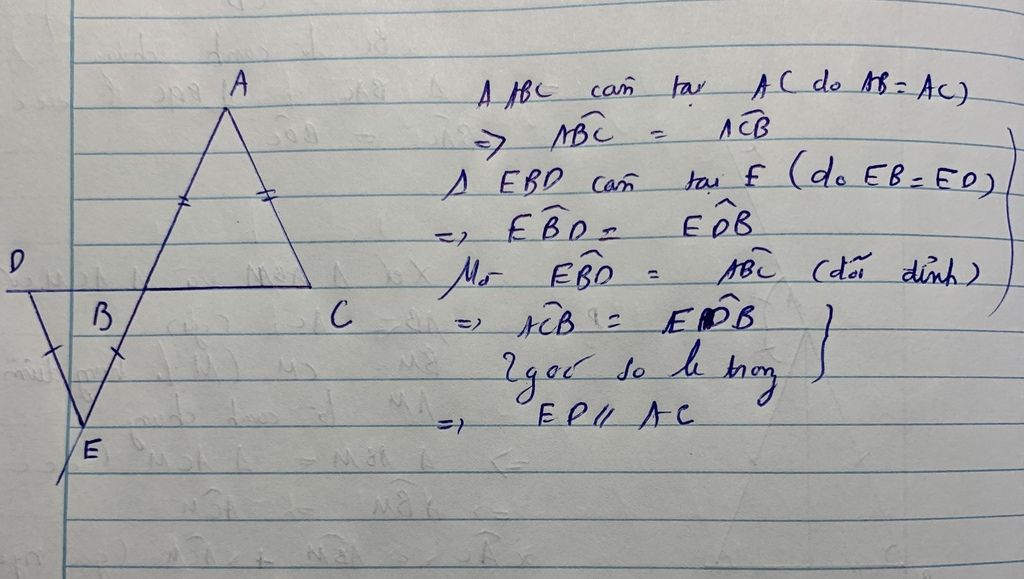 A
D
B
C
E
Δ ABC cân tại AC do AB = AC)
=> ABĈ = AĈB
Δ EBD cân tại E (do EB = ED)
=> EB̂D = ED̂B
Mà EB̂D = AB̂C (đối đỉnh)
=> AĈB = ED̂B
2 góc so le trong
=> ED // AC